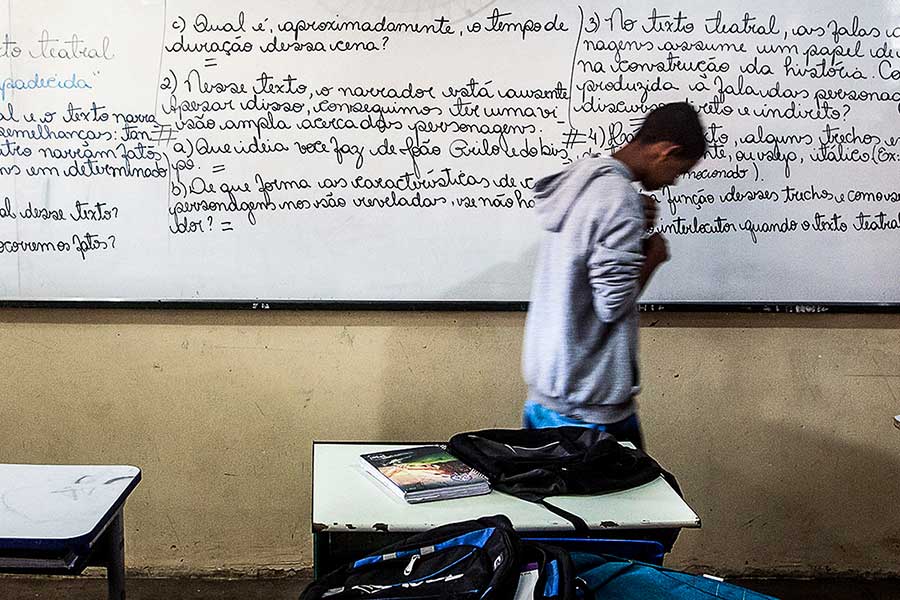 xto teatral
padecida"
al e o texto narra
semelhanças: tan
utro narram fatos
ns em determinado
al desse texto?
ocorrem os fatos?
c) Qual é, aproximadamente, o tempo de
duração dessa cena?
=
2) Nesse texto, o narrador está ausente
pesar disso, conseguimos ter uma vi
são ampla acerca das personagens.
a) Que idéia você faz de João Grilo e do bis
po?
b) De que forma as características de
personagens nos são reveladas, se não há
dor? =
3) No texto teatral, as falas
nagens assume um papel de
na construção da história. Co
produzida a fala das personag
discurso direto e indireto?
# 4) to, alguns trechos e
te, ou seja, itálico (Ex:
mocionado).
a função desses trechos e como
interlocutor quando o texto teatral